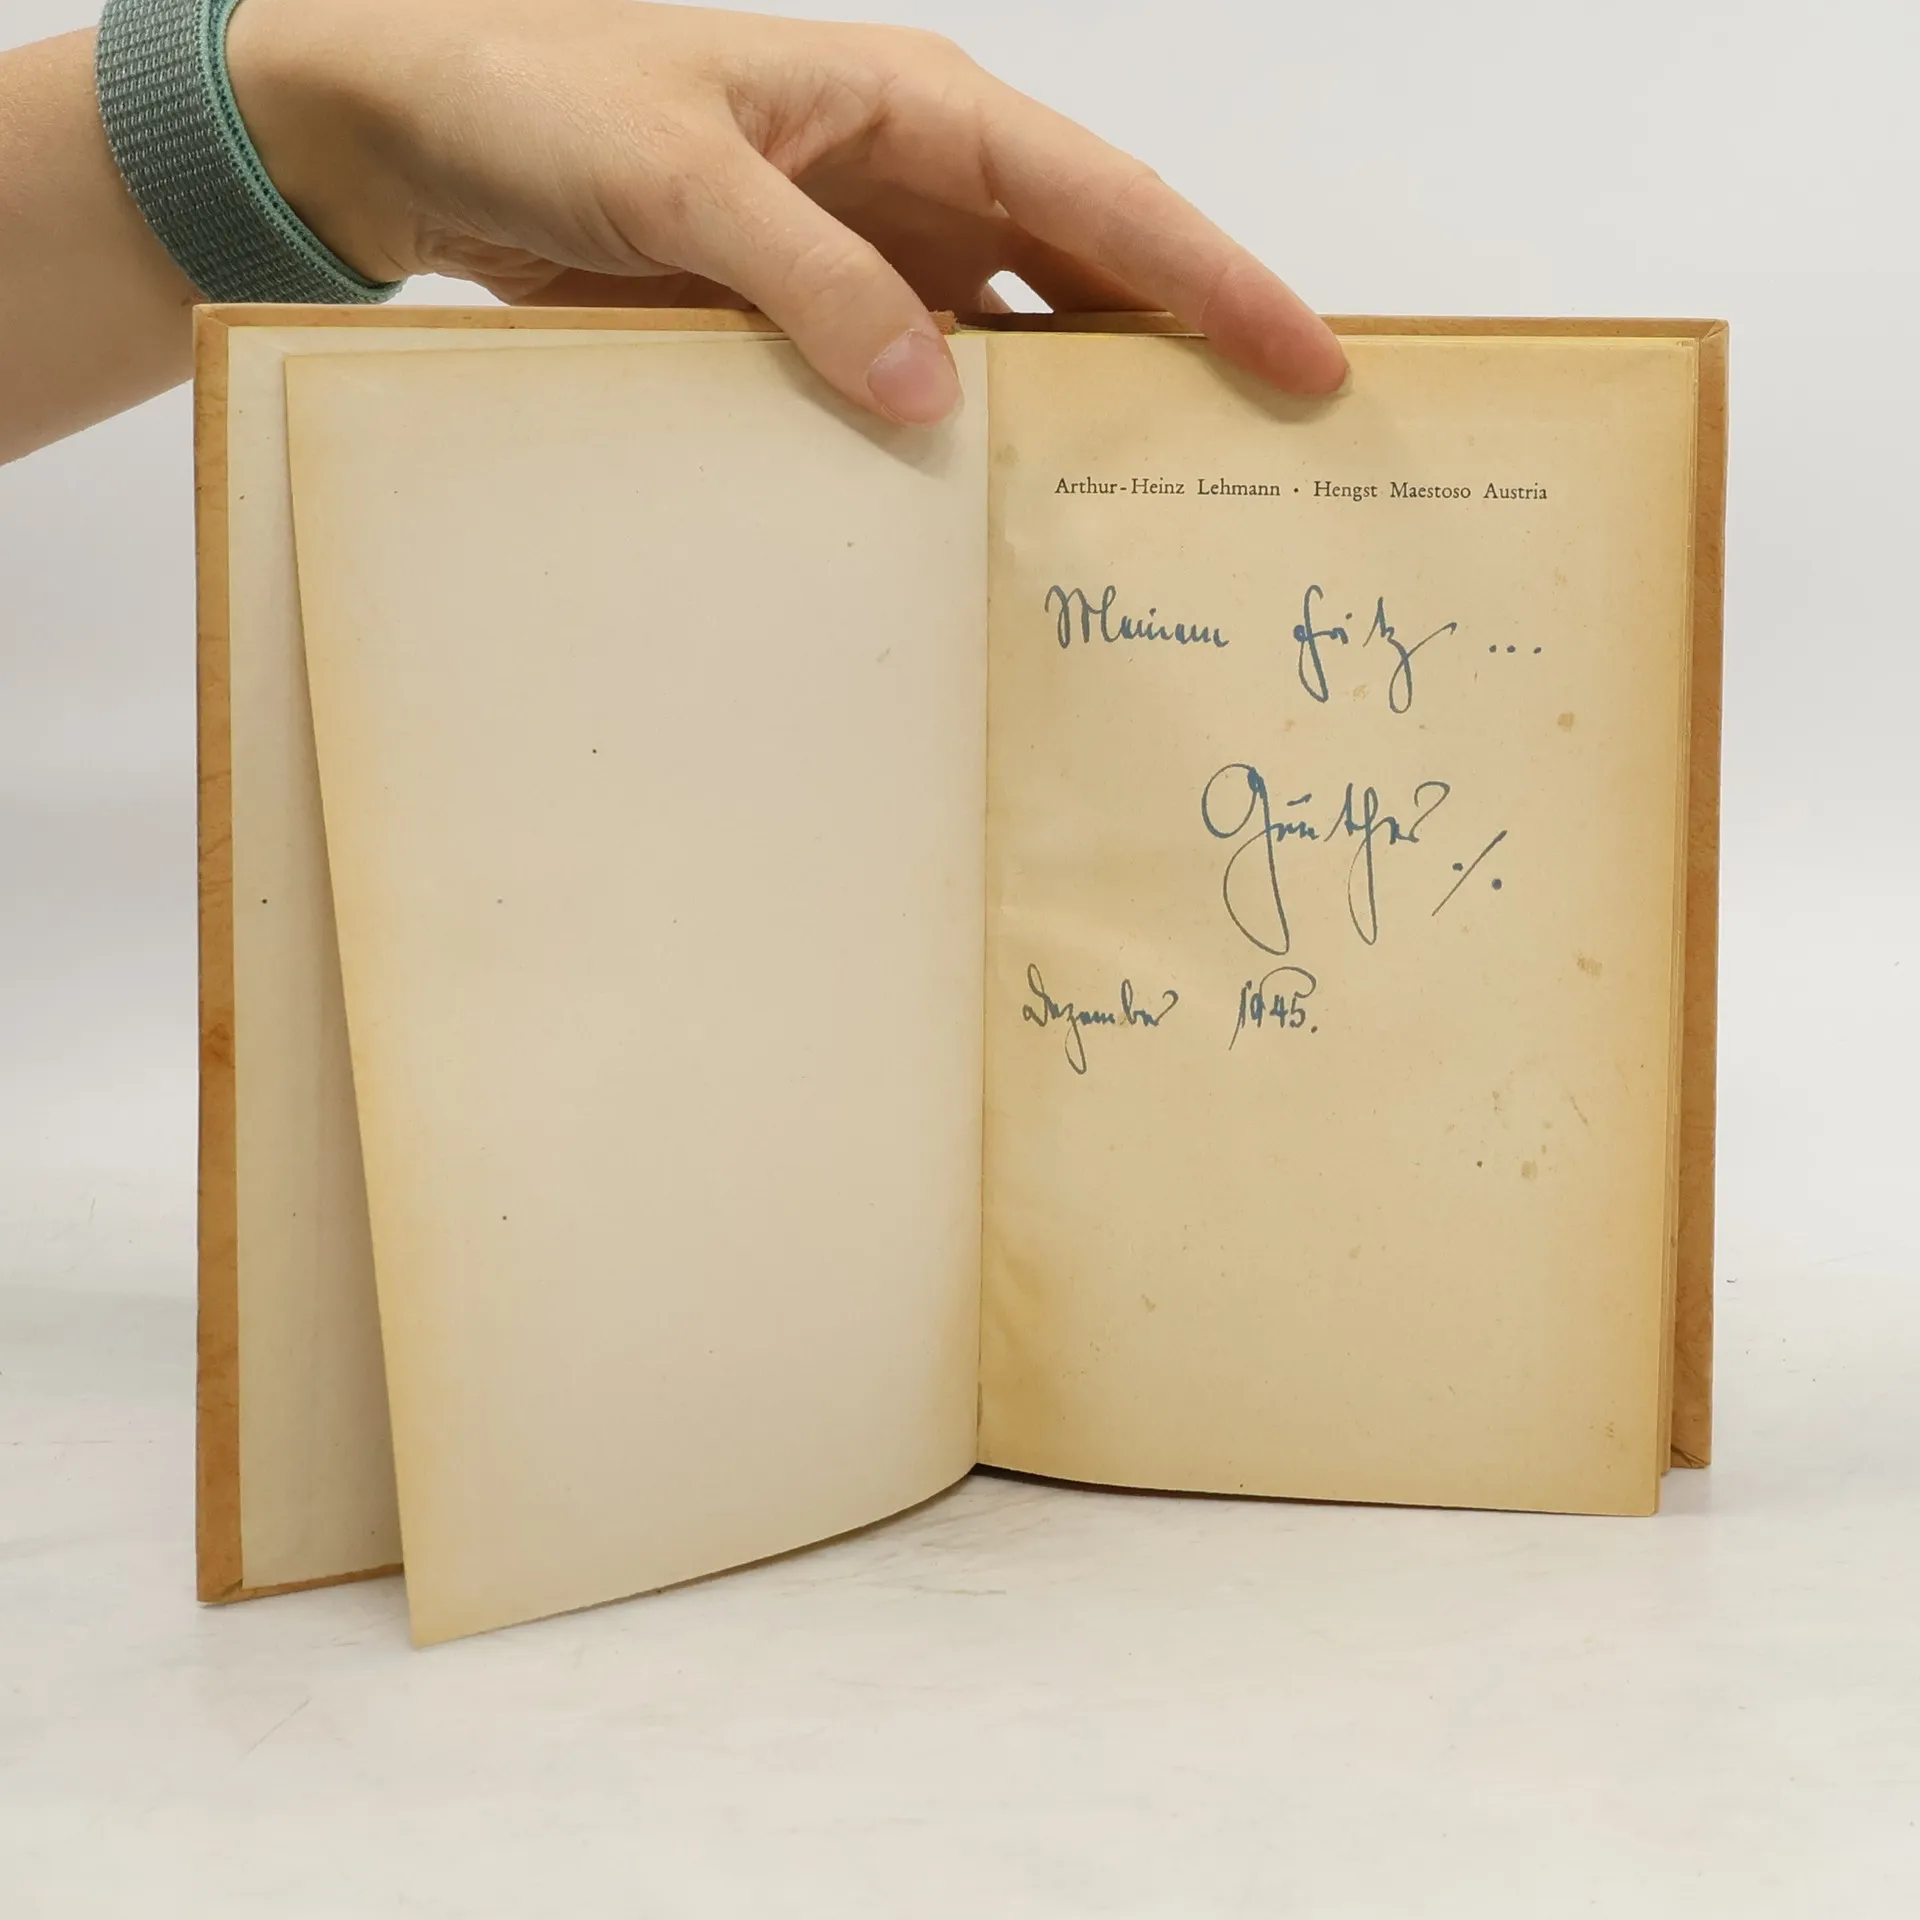 Arthur-Heinz Lehmann · Hengst Maestoso Austria
Meinem Fritz ...
Günther ./.
Dezember 1945.